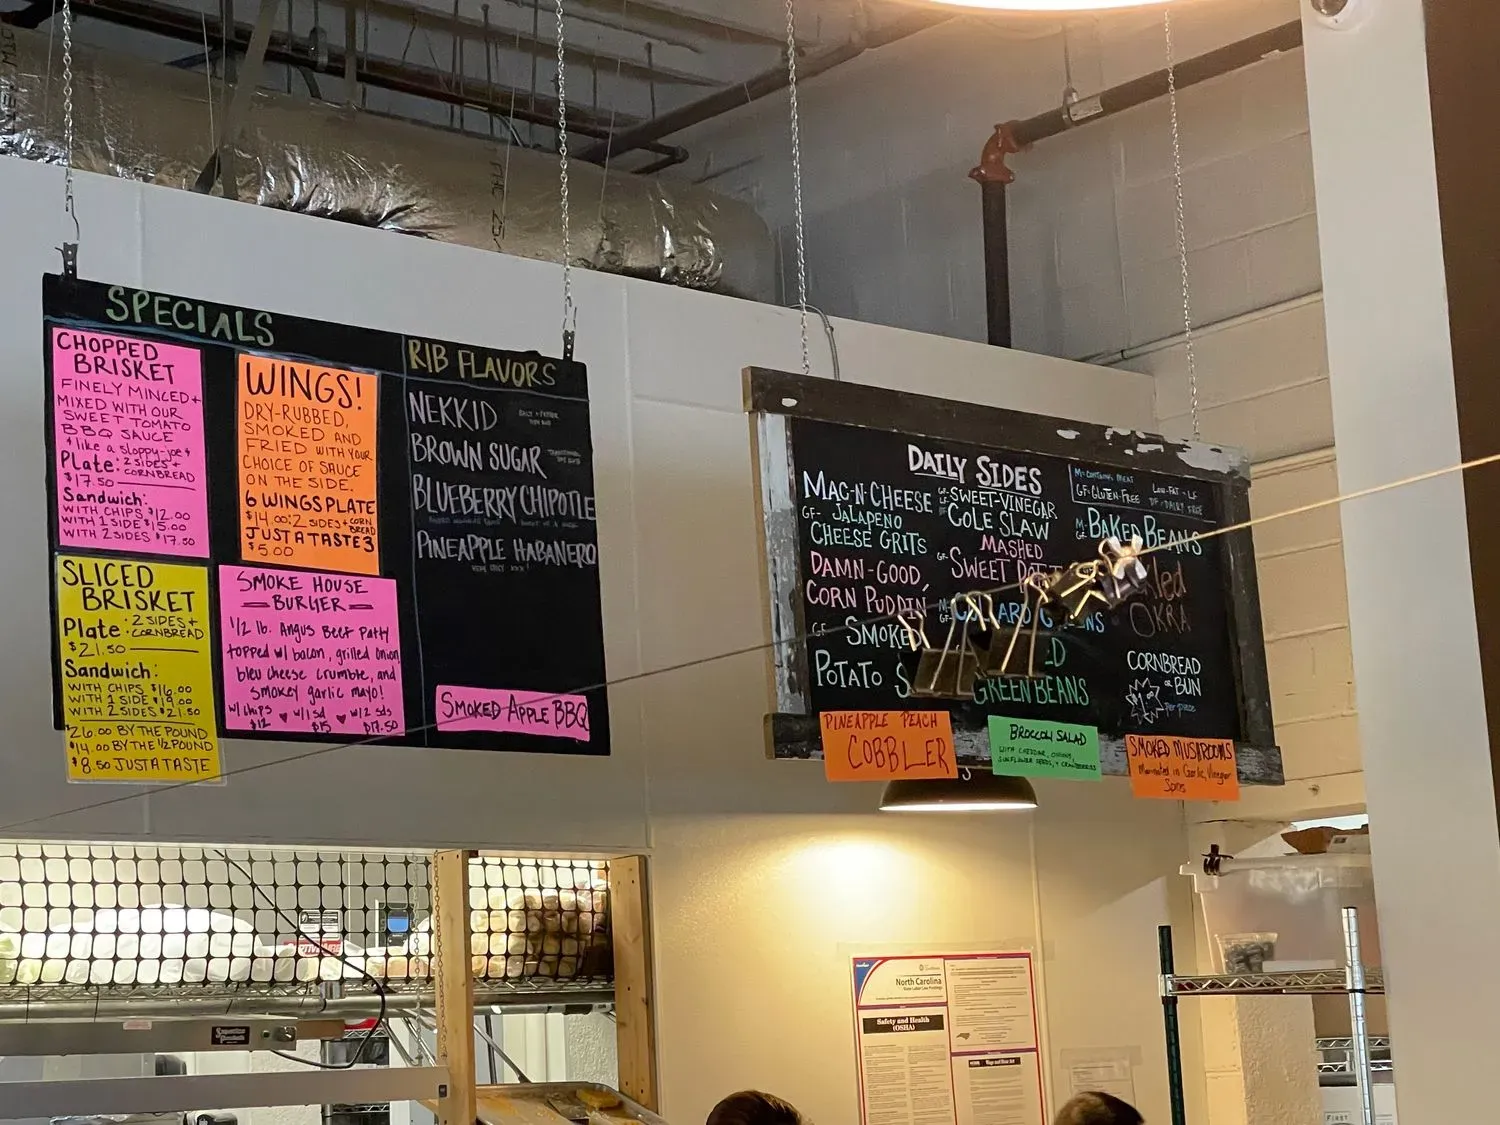 SPECIALS
CHOPPED
BRISKET
FINELY MINCED +
MIXED WITH OUR
SWEET TOMATO
BBQ SAUCE
*like a sloppy-joe*
Plate: 2 SIDES +
CORNBREAD
$17.50
Sandwich:
WITH CHIPS $12.00
WITH 1 SIDE $15.00
WITH 2 SIDES $17.50
SLICED
BRISKET
Plate: 2 SIDES +
CORNBREAD
$21.50
Sandwich:
WITH CHIPS $16.00
WITH 1 SIDE $19.00
WITH 2 SIDES $21.50
$26.00 BY THE POUND
$14.00 BY THE 1/2 POUND
$8.50 JUST A TASTE
WINGS!
DRY-RUBBED,
SMOKED AND
FRIED WITH YOUR
CHOICE OF SAUCE
ON THE SIDE.
6 WINGS PLATE
$14.00: 2 SIDES + CORN
BREAD
JUST A TASTE 3
$5.00
SMOKE HOUSE
BURGER
1/2 lb. Angus Beef Patty
topped w/ bacon, grilled onion
bleu cheese crumble, and
smokey garlic mayo!
w/ chips ♥ w/ 1 sd ♥ w/ 2 sds
$12 $15 $17.50
RIB FLAVORS
NEKKID
BROWN SUGAR
BLUEBERRY CHIPOTLE
PINEAPPLE HABANERO
SMOKED APPLE BBQ
DAILY SIDES
M- CONTAINS MEAT
GF- GLUTEN-FREE
LOW-FAT - LF
DF - DAIRY FREE
MAC-N-CHEESE
GF- JALAPENO
CHEESE GRITS
DAMN-GOOD,
CORN PUDDIN
GF- SMOKED
POTATO
SWEET-VINEGAR
COLE SLAW
MASHED
GF- SWEET
GREEN BEANS
M- BAKED BEANS
GF-
OKRA
CORNBREAD
or BUN
per piece
PINEAPPLE PEACH
COBBLER
BROCCOLI SALAD
WITH CHEDDAR, ONIONS,
SUNFLOWER SEEDS, + CRANBERRIES
SMOKED MUSHROOMS
Marinated in Garlic, Vinegar
Spices
North Carolina
Safety and Health
(OSHA)
FIRST